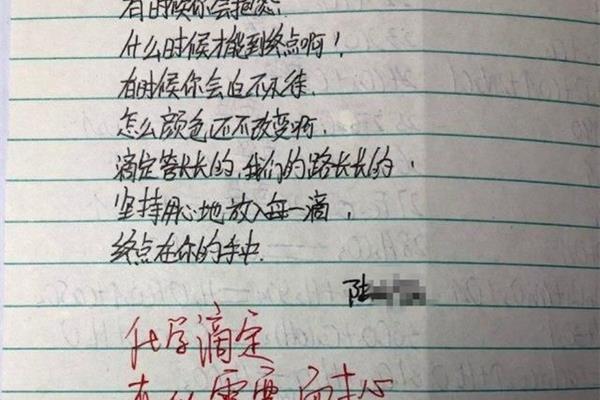 有时候你会抱怨
什么时候才能到终点啊！
有时候你会迫不及待
怎么颜色还不改变啊.
滴定管长长的,我们的路长长的,
坚持用心地放入每一滴,
终点在你的手中.
陆
化学滴定
需要耐心